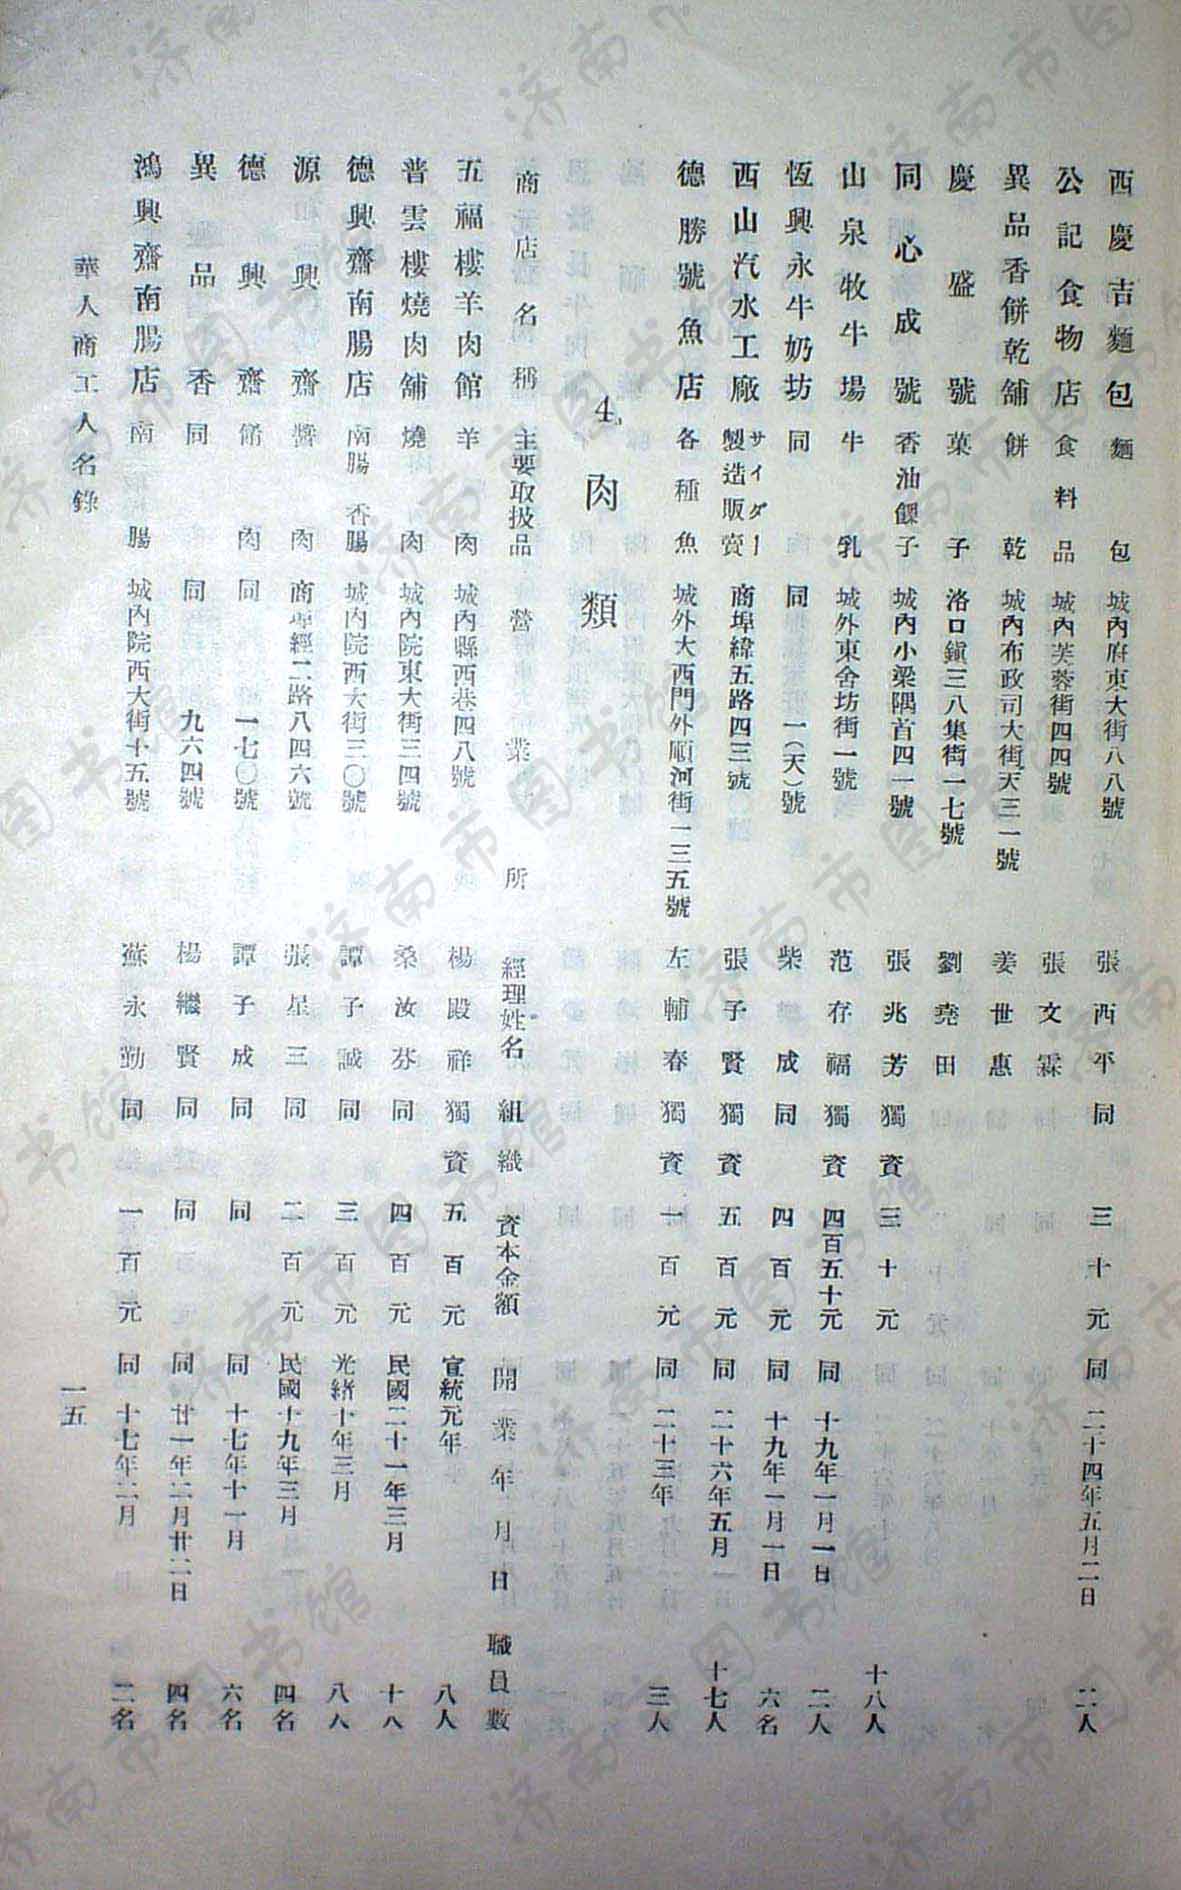 西慶吉麵包 麵包 城內府東大街八八號 張西平 同 三十元 同二十四年五月二日 二人
公記食物店 食料品 城內芙蓉街四四號 張文霖
異品香餅乾舖 餅乾 城內布政司大街天三一號 姜世惠
慶盛號 菓子 洛口鎮三八集街一七號 劉堯田
同心成號 香油餜子 城內小梁隅首四一號 張兆芳 獨資 三十元 十八人
山泉牧牛場 牛乳 城外東舍坊街一號 范存福 獨資 四百五十元 同十九年一月一日 二人
恆興永牛奶坊 同 同一(天)號 柴成 同 四百元 同十九年一月一日 六名
西山汽水工廠 サイダー製造販賣 商埠緯五路四三號 張子賢 獨資 五百元 同二十六年五月 十七人
德勝號魚店 各種魚 城外大西門外順河街一三五號 左輔春 獨資 一百元 同二十三年 三人
4. 肉類
商店名稱 主要取扱品 營業所 經理姓名 組織 資本金額 開業年月日 職員數
五福樓羊肉館 羊肉 城內縣西巷四八號 楊殿祥 獨資 五百元 宣統元年 八人
普雲樓燒肉舖 燒肉 城內院東大街三四號 桑汝芬 同 四百元 民國二十一年三月 十八
德興齋南腸店 南腸香腸 城內院西大街三〇號 譚子誠 同 三百元 光緒十年三月 八人
源興齋 醬肉 商埠經二路八四六號 張星三 同 二百元 民國十九年三月 四名
德興齋 肉 同一七〇號 譚子成 同 同 同十七年十一月 六名
異品香 同 同九六四號 楊繼賢 同 同 同廿一年二月廿二日 四名
鴻興齋南腸店 南腸 城內院西大街十五號 蘇永勤 同 一百元 同十七年二月 二名
華人商工人名錄
一五
济南市图书馆